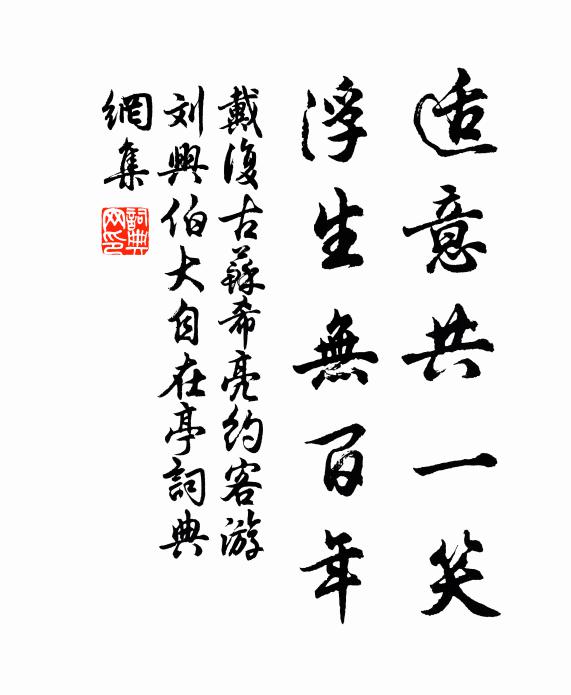 适意共一笑
浮生無百年
戴復古蘇希亮約客游
刘興伯大自在亭詞典
網集
詞典网印